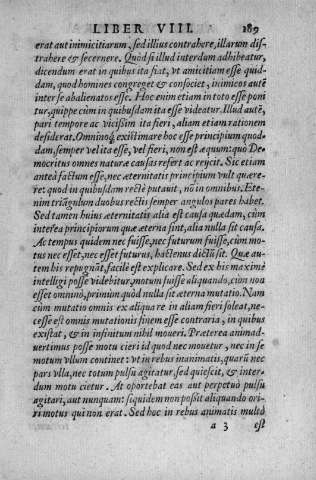 LIBER VIII. 189
erat aut inimicitiarum, sed illius contrahere, illarum dis-
trahere & secernere. Quòd si illud interdum adhibeatur,
dicendum erat in quibus ita fiat, vt amicitiam esse quid-
dam, quod homines congreget & consociet, inimicos autē
inter se abalienatos esse. Hoc enim etiam in toto esse poni
tur, quippe cùm in quibusdam ita esse videatur. Illud autē,
pari tempore ac vicißim ita fieri, aliam etiam rationem
desiderat. Omninoq́; existimare hoc esse principium quod-
dam, semper vel ita esse, vel fieri, non est æquum: quò De-
mocritus omnes naturæ causas refert ac reijcit. Sic etiam
anteà factum esse, nec æternitatis principium vult quære-
re: quod in quibusdam rectè putaut, nō in omnibus. Ete-
nim triāgulum duobus rectis semper angulos pares habet.
Sed tamen huius æternitatis alia est causa quædam, cùm
interea principiorum quæ æterna sint, alia nulla sit causa.
Ac tempus quidem nec fuisse, nec futurum fuisse, cùm mo-
tus nec esset, nec esset futurus, hactenus dictū sit. Quæ au-
tem his repugnāt, facilè est explicare. Sed ex his maximè
intelligi posse videbitur, motum fuisse aliquando, cùm non
esset omninò, primùm quòd nulla sit æterna mutatio. Nam
cùm mutatio omnis ex aliqua re in aliam fieri soleat, ne-
cesse est omnis mutationis finem esse contraria, in quibus
existat, & in infinitum nihil moueri. Præterea animad-
uertimus posse motu cieri id quod nec mouetur, nec in se
motum vllum continet: vt in rebus inanimatis, quarū nec
pars vlla, nec totum pulsu agitatur, sed quiescit, & inter-
dum motu cietur. At oportebat eas aut perpetuò pulsu
agitari, aut nunquam: siquidem non poßit aliquando ori-
ri motus qui non erat. Sed hoc in rebus animatis multò
a 3 est